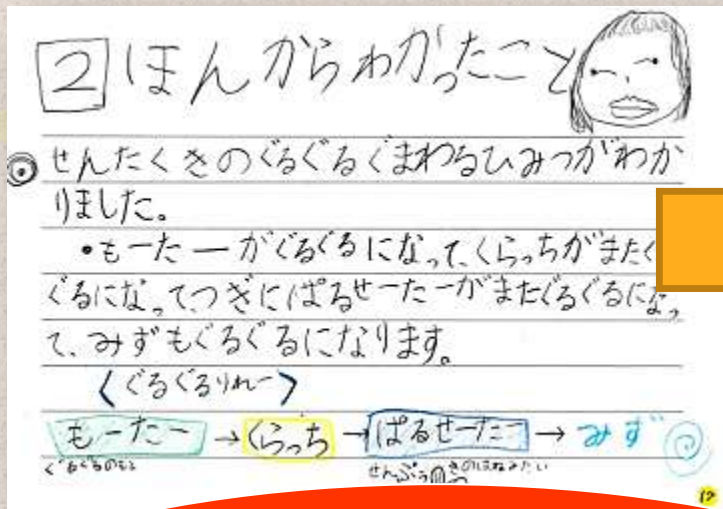 2 ほんからわかったこと
◎せんたくきのぐるぐるぐまわるひみつがわか
りました。
・もーたーがぐるぐるになって、くらっちがまたぐ
ぐるになって、つぎにぱるせーたーがまたぐるぐるになっ
て、みずもぐるぐるになります。
〈ぐるぐるりれー〉
もーたー→くらっち→ぱるせーたー→みず
ぐるぐるのもと
せんぷうきのはねみたい
12